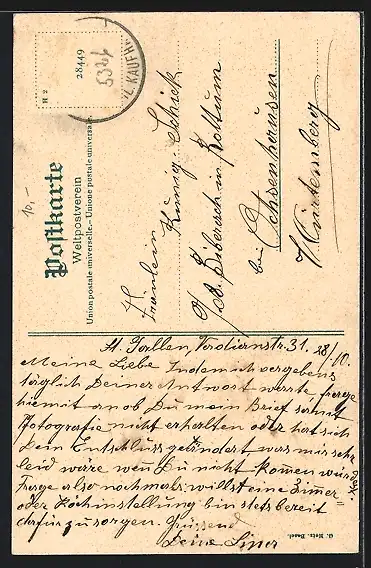 Postkarte
Weltpostverein
Union postale universelle. - Unione postale universale.
H 2
28449
5324
KAUFH
10,-
Fräulein
Schick
Ob. Biberach in Rottum
bei Ochsenhausen
Würtemberg
St. Gallen, 31. 28/10.
Meine Liebe Indem ich vergebens
täglich Deiner Antwort warte, frage
hiemit an ob Du mein Brief sammt
Fotografie nicht erhalten oder hat sich
Dein Entschluss geändert, was mir sehr
leid ware wenn Du nicht komen
Frage also nochmals willst eine Zimer-
oder Köchinstellung bin stets bereit
dafür zu sorgen. Grüssend
Deine
G. Metz, Basel.